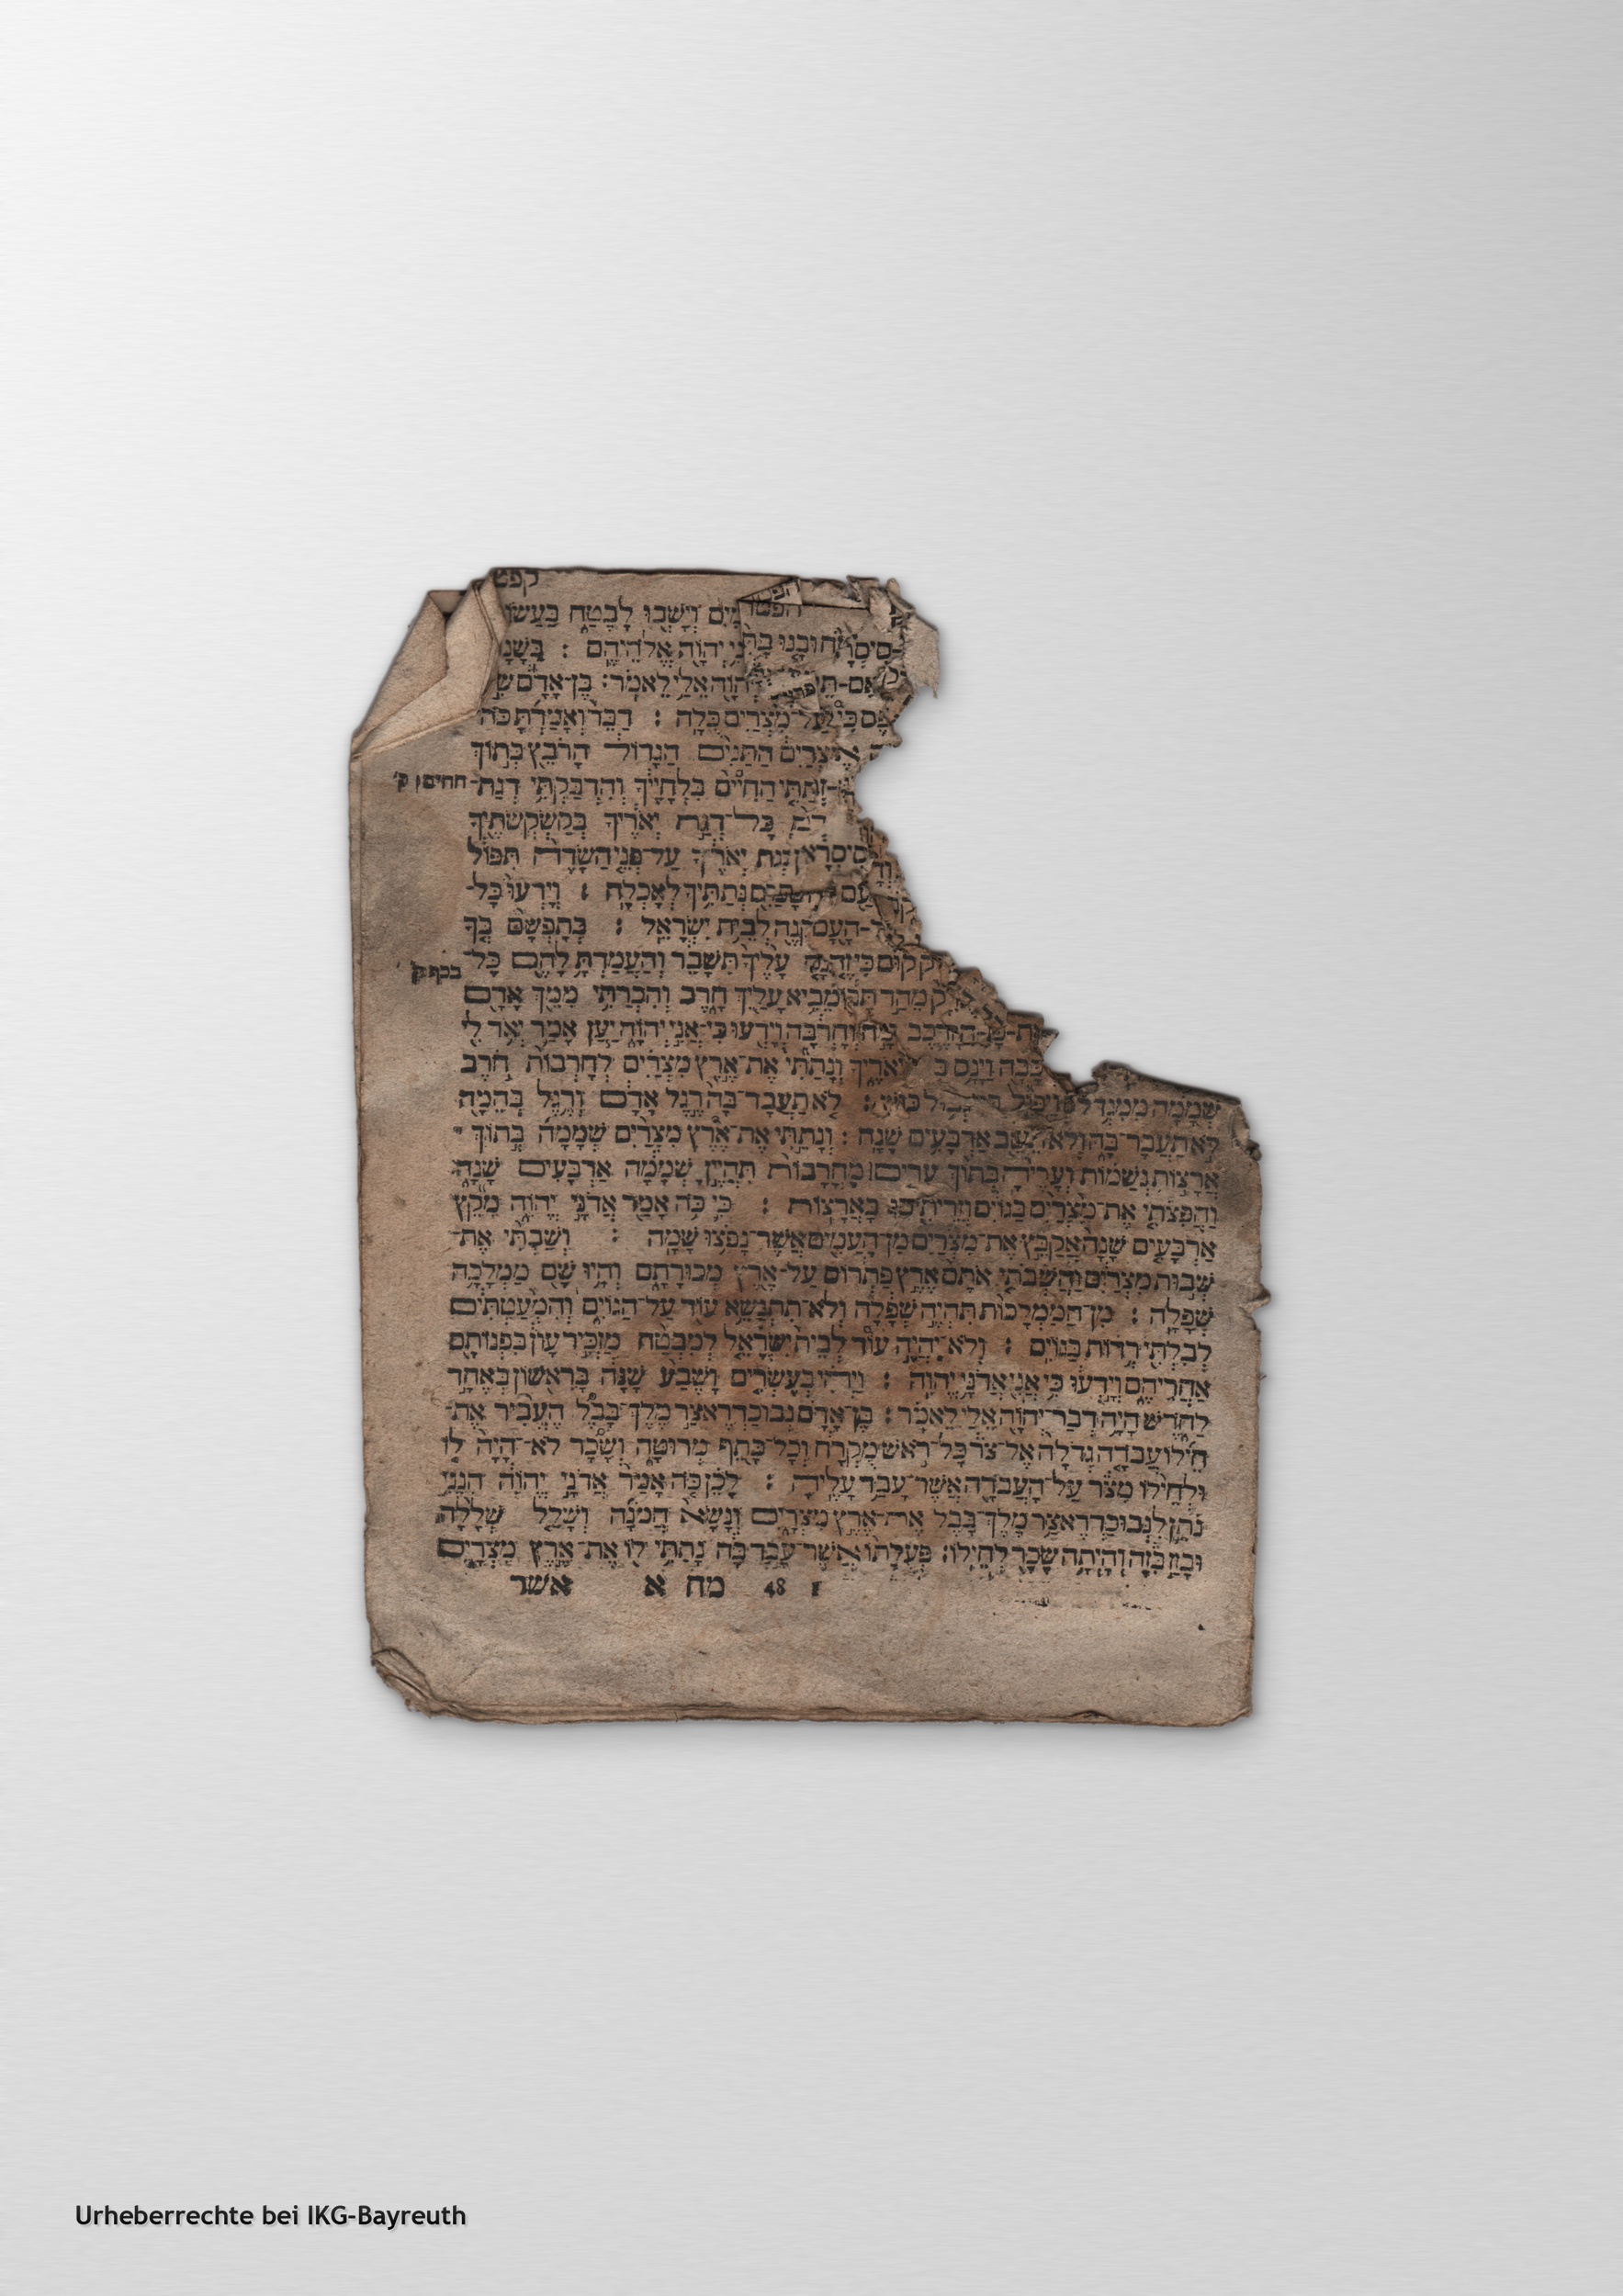 קפט
וְיָשְׁבוּ לָבֶטַח בַּעֲשׂ
יְהוָה אֱלֹהֵיהֶם : בַּשָּׁנָ
אֵלַי לֵאמֹר : בֶּן־אָדָם שׂ
מִצְרַיִם כֻּלָּהּ : דַּבֵּר וְאָמַרְתָּ כֹּה
הַתַּנִּים הַגָּדוֹל הָרֹבֵץ בְּתוֹךְ
חחיםן ק'
בִּלְחָיֶיךָ וְהִדְבַּקְתִּי דְגַת־
כָּל־דְּגַת יְאֹרֶיךָ בְּקַשְׂקְשֹׂתֶיךָ
דְּגַת יְאֹרֶיךָ עַל־פְּנֵי הַשָּׂדֶה תִּפּוֹל
נְתַתִּיךָ לְאָכְלָה : וְיָדְעוּ כָּל־
לְבֵית יִשְׂרָאֵל : בְּתָפְשָׂם בְּךָ
בכף ק'
עָלֶיךָ תִּשָּׁבֵר וְהַעֲמַדְתָּ לָהֶם כָּל־
מֵבִיא עָלַיִךְ חָרֶב וְהִכְרַתִּי מִמֵּךְ אָדָם
וְחָרְבָּה וְיָדְעוּ כִּי־אֲנִי יְהוָה יַעַן אָמַר יְאֹר לִי
יְאֹרֶיךָ וְנָתַתִּי אֶת־אֶרֶץ מִצְרַיִם לְחָרְבוֹת חֹרֶב
שְׁמָמָה מִמִּגְדֹּל כּוּשׁ : לֹא תַעֲבָר־בָּהּ רֶגֶל אָדָם וְרֶגֶל בְּהֵמָה
לֹא תַעֲבָר־בָּהּ וְלֹא תֵשֵׁב אַרְבָּעִים שָׁנָה : וְנָתַתִּי אֶת־אֶרֶץ מִצְרַיִם שְׁמָמָה בְּתוֹךְ
אֲרָצוֹת נְשַׁמּוֹת וְעָרֶיהָ בְּתוֹךְ עָרִים מָחֳרָבוֹת תִּהְיֶיןָ שְׁמָמָה אַרְבָּעִים שָׁנָה
וַהֲפִצֹתִי אֶת־מִצְרַיִם בַּגּוֹיִם וְזֵרִיתִים בָּאֲרָצוֹת : כִּי כֹּה אָמַר אֲדֹנָי יְהוִה מִקֵּץ
אַרְבָּעִים שָׁנָה אֲקַבֵּץ אֶת־מִצְרַיִם מִן־הָעַמִּים אֲשֶׁר־נָפֹצוּ שָׁמָּה : וְשַׁבְתִּי אֶת־
שְׁבוּת מִצְרַיִם וַהֲשִׁבֹתִי אֹתָם אֶרֶץ פַּתְרוֹס עַל־אֶרֶץ מְכוּרָתָם וְהָיוּ שָׁם מַמְלָכָה
שְׁפָלָה : מִן־הַמַּמְלָכוֹת תִּהְיֶה שְׁפָלָה וְלֹא־תִתְנַשֵּׂא עוֹד עַל־הַגּוֹיִם וְהִמְעַטְתִּים
לְבִלְתִּי רְדוֹת בַּגּוֹיִם : וְלֹא יִהְיֶה־עוֹד לְבֵית יִשְׂרָאֵל לְמִבְטָח מַזְכִּיר עָוֹן בִּפְנוֹתָם
אַחֲרֵיהֶם וְיָדְעוּ כִּי אֲנִי אֲדֹנָי יְהוִה : וַיְהִי בְּעֶשְׂרִים וָשֶׁבַע שָׁנָה בָּרִאשׁוֹן בְּאֶחָד
לַחֹדֶשׁ הָיָה דְבַר־יְהוָה אֵלַי לֵאמֹר : בֶּן־אָדָם נְבוּכַדְרֶאצַּר מֶלֶךְ־בָּבֶל הֶעֱבִיד אֶת־
חֵילוֹ עֲבֹדָה גְדֹלָה אֶל־צֹר כָּל־רֹאשׁ מֻקְרָח וְכָל־כָּתֵף מְרוּטָה וְשָׂכָר לֹא־הָיָה לוֹ
וּלְחֵילוֹ מִצֹּר עַל־הָעֲבֹדָה אֲשֶׁר־עָבַד עָלֶיהָ : לָכֵן כֹּה אָמַר אֲדֹנָי יְהוִה הִנְנִי
נֹתֵן לִנְבוּכַדְרֶאצַּר מֶלֶךְ־בָּבֶל אֶת־אֶרֶץ מִצְרָיִם וְנָשָׂא הֲמֹנָהּ וְשָׁלַל שְׁלָלָהּ
וּבָזַז בִּזָּהּ וְהָיְתָה שָׂכָר לְחֵילוֹ : פְּעֻלָּתוֹ אֲשֶׁר־עָבַד בָּהּ נָתַתִּי לוֹ אֶת־אֶרֶץ מִצְרָיִם
48 מח א אשר
Urheberrechte bei IKG-Bayreuth